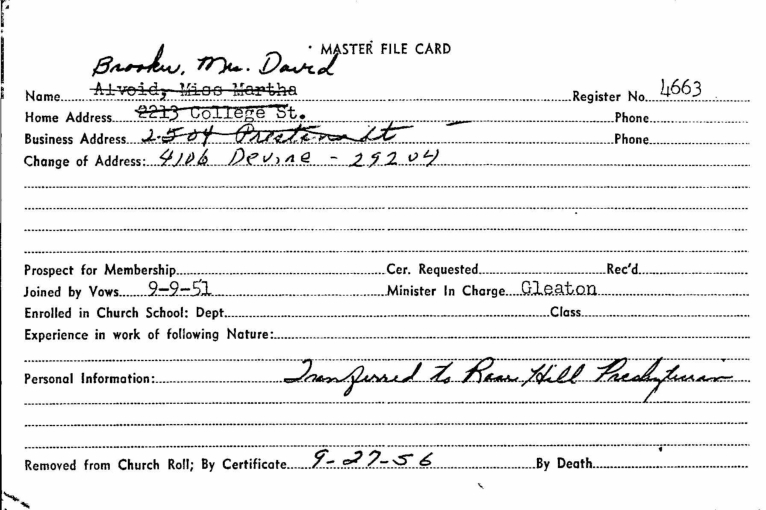 MASTER FILE CARD
Brooker, Mrs. David
Name Alvoid, Miss Martha Register No. 4663
Home Address 2213 College St. Phone
Business Address 2504 Preston St Phone
Change of Address: 4106 Devine - 29204
Prospect for Membership Cer. Requested Rec'd
Joined by Vows 9-9-51 Minister In Charge Gleaton
Enrolled in Church School: Dept. Class
Experience in work of following Nature:
Personal Information: Transferred to Rose Hill Presbyterian
Removed from Church Roll; By Certificate 9-27-56 By Death